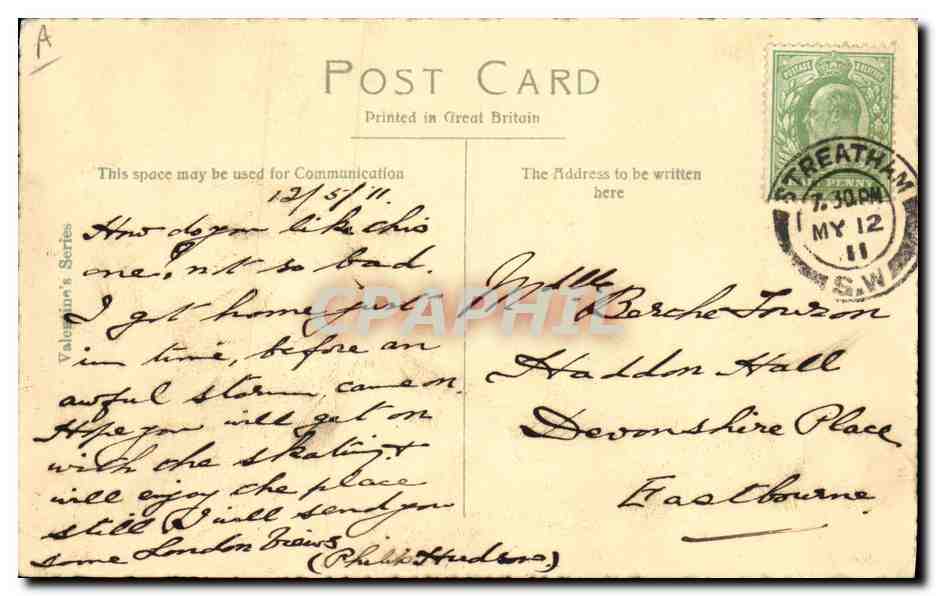 A
POST CARD
Printed in Great Britain
This space may be used for Communication
The Address to be written
here
Valentine's Series
POSTAGE & REVENUE
HALF PENNY
STREATHAM
7.30 PM
MY 12
11
S.W
12/5/11.
How do you like this
one, not so bad.
I got home just
in time, before an
awful storm came on
Hope you will get on
with the skating &
will enjoy the place
still I will send you
some London views
(Philip Hudson)
Mdlle Berthe Touzon
Haddon Hall
Devonshire Place
Eastbourne
CPAPHIL